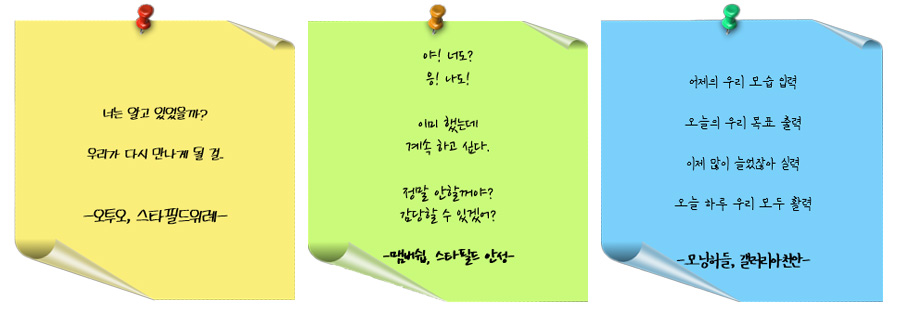 너는 알고 있었을까?
우리가 다시 만나게 될 걸.
-오투오, 스타필드위례-
야! 너도?
응! 나도!
이미 했는데
계속 하고 싶다.
정말 안할꺼야?
감당할 수 있겠어?
-맴버쉽, 스타필드 안성-
어제의 우리 모습 입력
오늘의 우리 목표 출력
이제 많이 늘었잖아 실력
오늘 하루 우리 모두 활력
-모닝허들, 갤러리아천안-